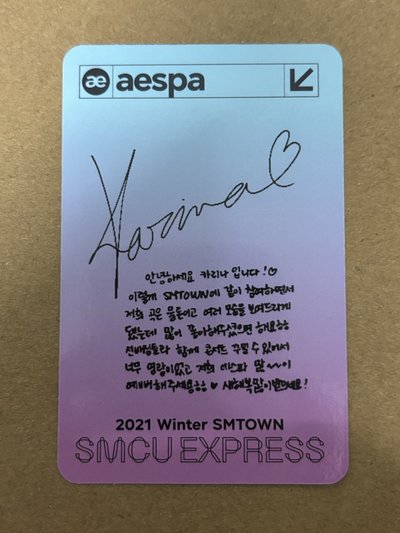 æ aespa
Karina♡
안녕하세요 카리나 입니다!♡
이렇게 SMTOWN에 같이 참여하면서
저희 곡은 물론이고 여러 모습을 보여드리게
됐는데 많이 좋아해주셨으면 해요ㅎㅎ
선배님들과 함께 콘서트 꾸밀 수 있어서
너무 영광이었고 저희 에스파 많~이
예뻐해주세용ㅎㅎ ♥ 새해복많이받으세요!
2021 Winter SMTOWN
SMCU EXPRESS